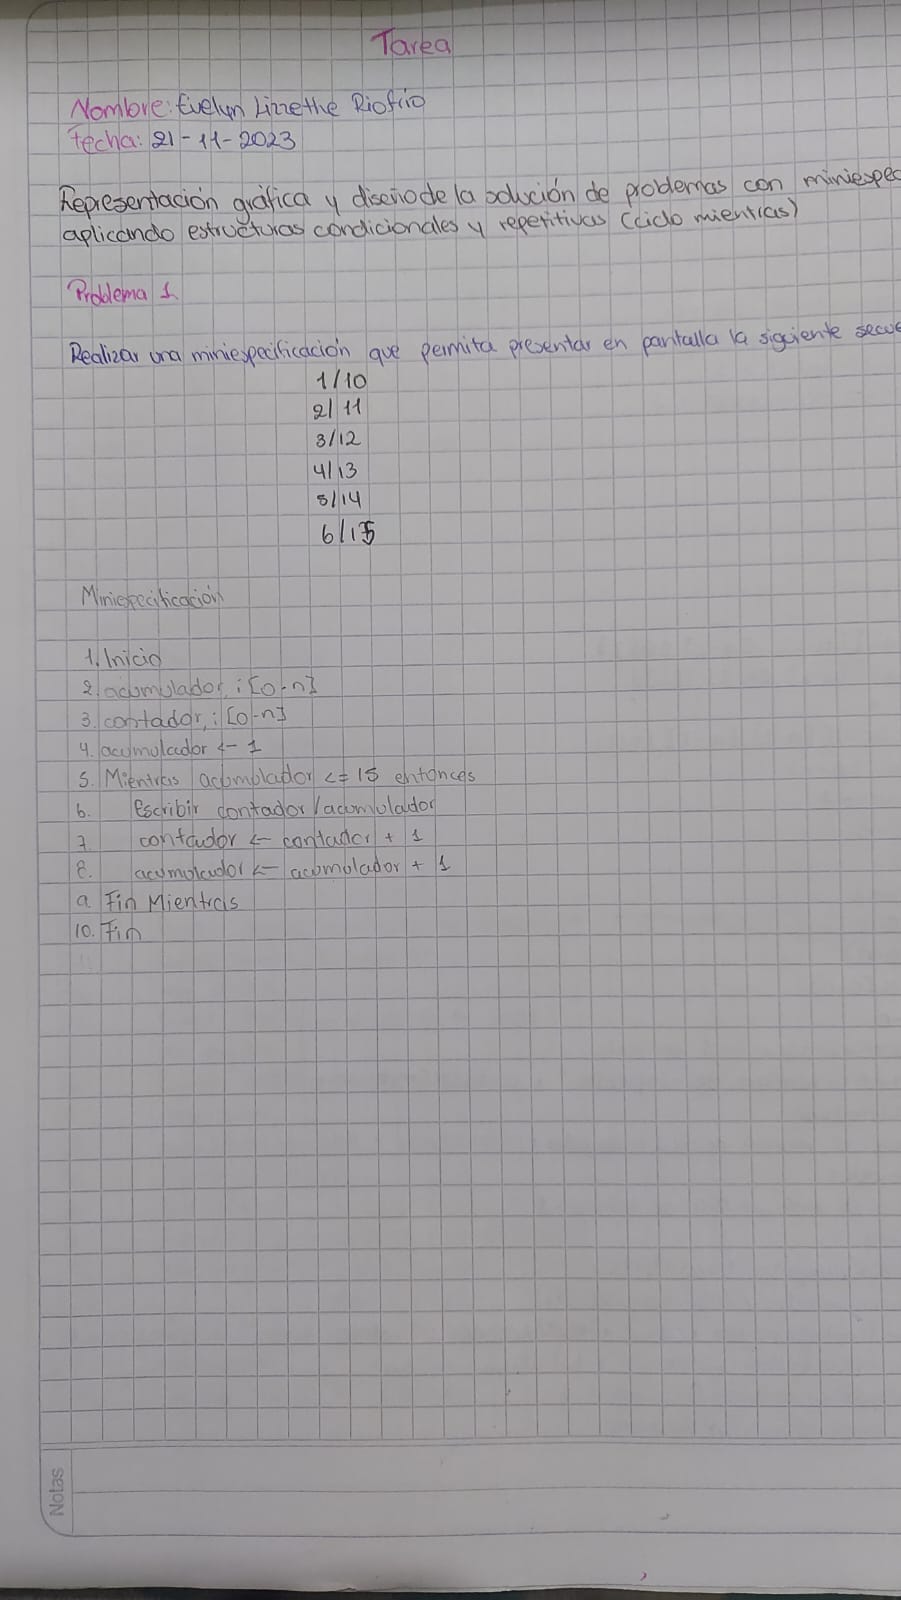 Tarea
Nombre: Evelyn Lizzethe Riofrio
Fecha: 21-11-2023
Representación gráfica y diseño de la solución de problemas con miniespec
aplicando estructuras condicionales y repetitivas (ciclo mientras)
Problema 1
Realizar una miniespecificación que permita presentar en pantalla la siguiente secue
1/10
2/11
3/12
4/13
5/14
6/15
Miniespecificación
1. Inicio
2. acumulador : [0-n]
3. contador : [0-n]
4. acumulador <- 1
5. Mientras acumulador <= 15 entonces
6. Escribir contador/acumulador
7. contador <- contador + 1
8. acumulador <- acumulador + 1
9. Fin Mientras
10. Fin
Notas